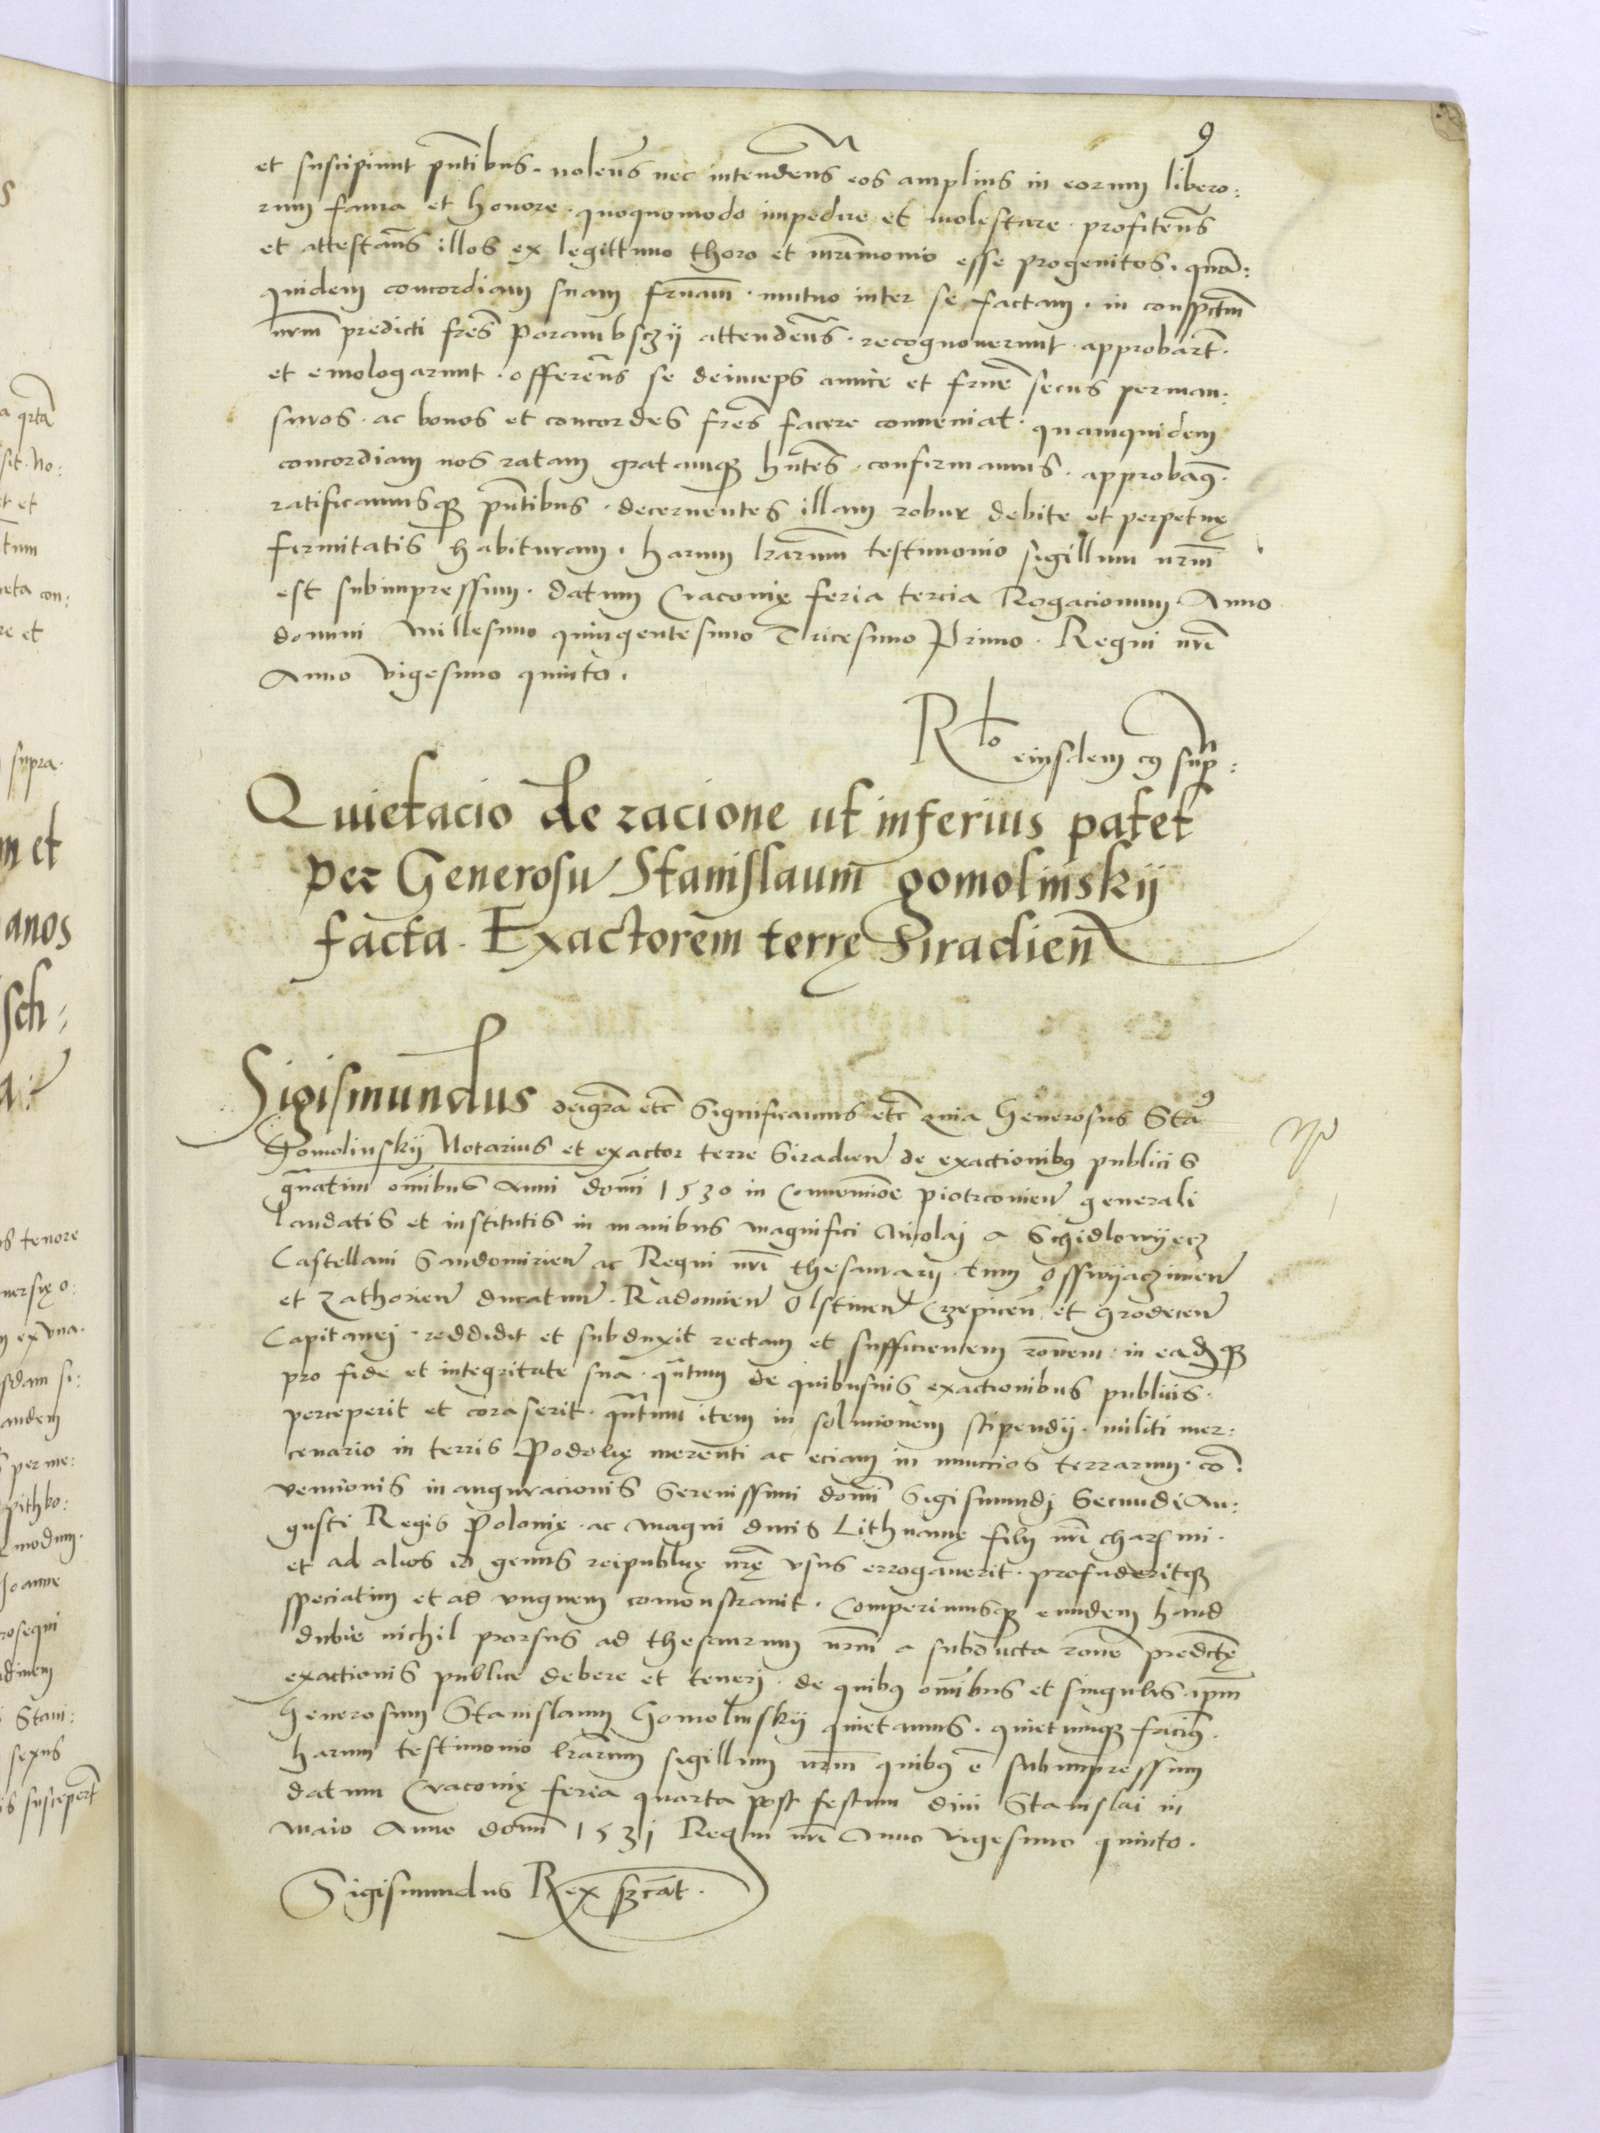 9
et suscipiunt pntibus. nolens nec intendens eos amplius in eorum libero:
rum fama et honore. quoquomodo impedire et molestare. profitens
et attestans illos ex legittimo thoro et mrimonio esse progenitos. quam:
quidem concordiam suam frnam. mutuo inter se factam. in conspctum
nrm predicti fres Porambsczij attendens. recognoverunt. approbarunt.
et emologarunt. offerens se deinceps amice et frne secus perman:
suros. ac bonos et concordes fres facere conveniat. quamquidem
concordiam nos ratam gratamque hntes. confirmamus. approbamus.
ratificamusque pntibus. decernentes illam robur debite et perpetuę
firmitatis habituram. harum lrarum testimonio sigillum nrm
est subimpressum. datum Cracovię feria tercia Rogacionum Anno
domini Millesimo quingentesimo Tricesimo Primo. Regni nri
Anno Vigesimo quinto.
Rlo eiusdem cuius supra:
Quietacio de racione ut inferius patet
per Generosu Stanislaum gomolinskij
facta. Exactorem terrę Siradien
Sigismundus dei gra etc Significamus etc Quia Generosus Stanus
Gomolinskij Notarius et exactor terre Siradien de exactionibus publicis
gnatim omibus Anni domi 1530 in Convencione Piotrcovien generali
laudatis et institutis in manibus magnifici Nicolaj a Schidlowijecz
Castellani Sandomirien ac Regni nri thesaurarij. tum Osswijaczimen
et Zathorien ducatum. Radomien Olstinen Czepicen et Grodecen
Capitanej. reddidit et subduxit rectam et sufficientem ronem. in eademque
pro fide et integritate sua. quantum de quibusuis exactionibus publicis.
perceperit et coraserit. quantum item in solucionem stipendij. militi mer:
cenario in terris Podolię merenti ac eciam in nunccios terrarum. con
vencionis inauguracionis Serenissimi domi Sigismundj Secundi Au:
gusti Regis Polonię. ac magni ducis Lithuanię filij nri charismi.
et ad alios id genus reipublicę nrę usus errogaverit. profuderitque
speciatim et ad unguem comonstravit. Comperimusque eundem haud
dubie nichil prorsus ad thesaurum nrm a subducta rone predictę
exactionis publice debere et tenerj. de quibus omibus et singulis ipm
Generosum Stanislaum Gomolinskij quietamus. quietumque facimus.
harum testimonio lrarum sigillum nrm quibus e subimpressum
datum Cracovię feria quarta post festum divi Stanislai in
Maio Anno domi 1531 Regni nri Anno Vigesimo quinto.
Sigismundus Rex